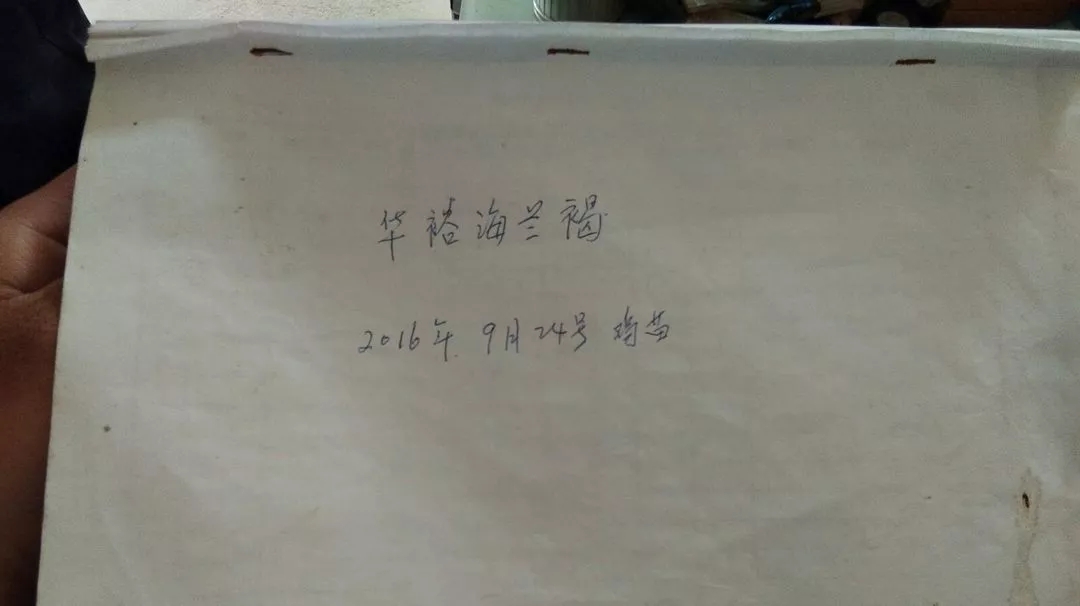 华裕海兰褐
2016年.9月24号 鸡苗